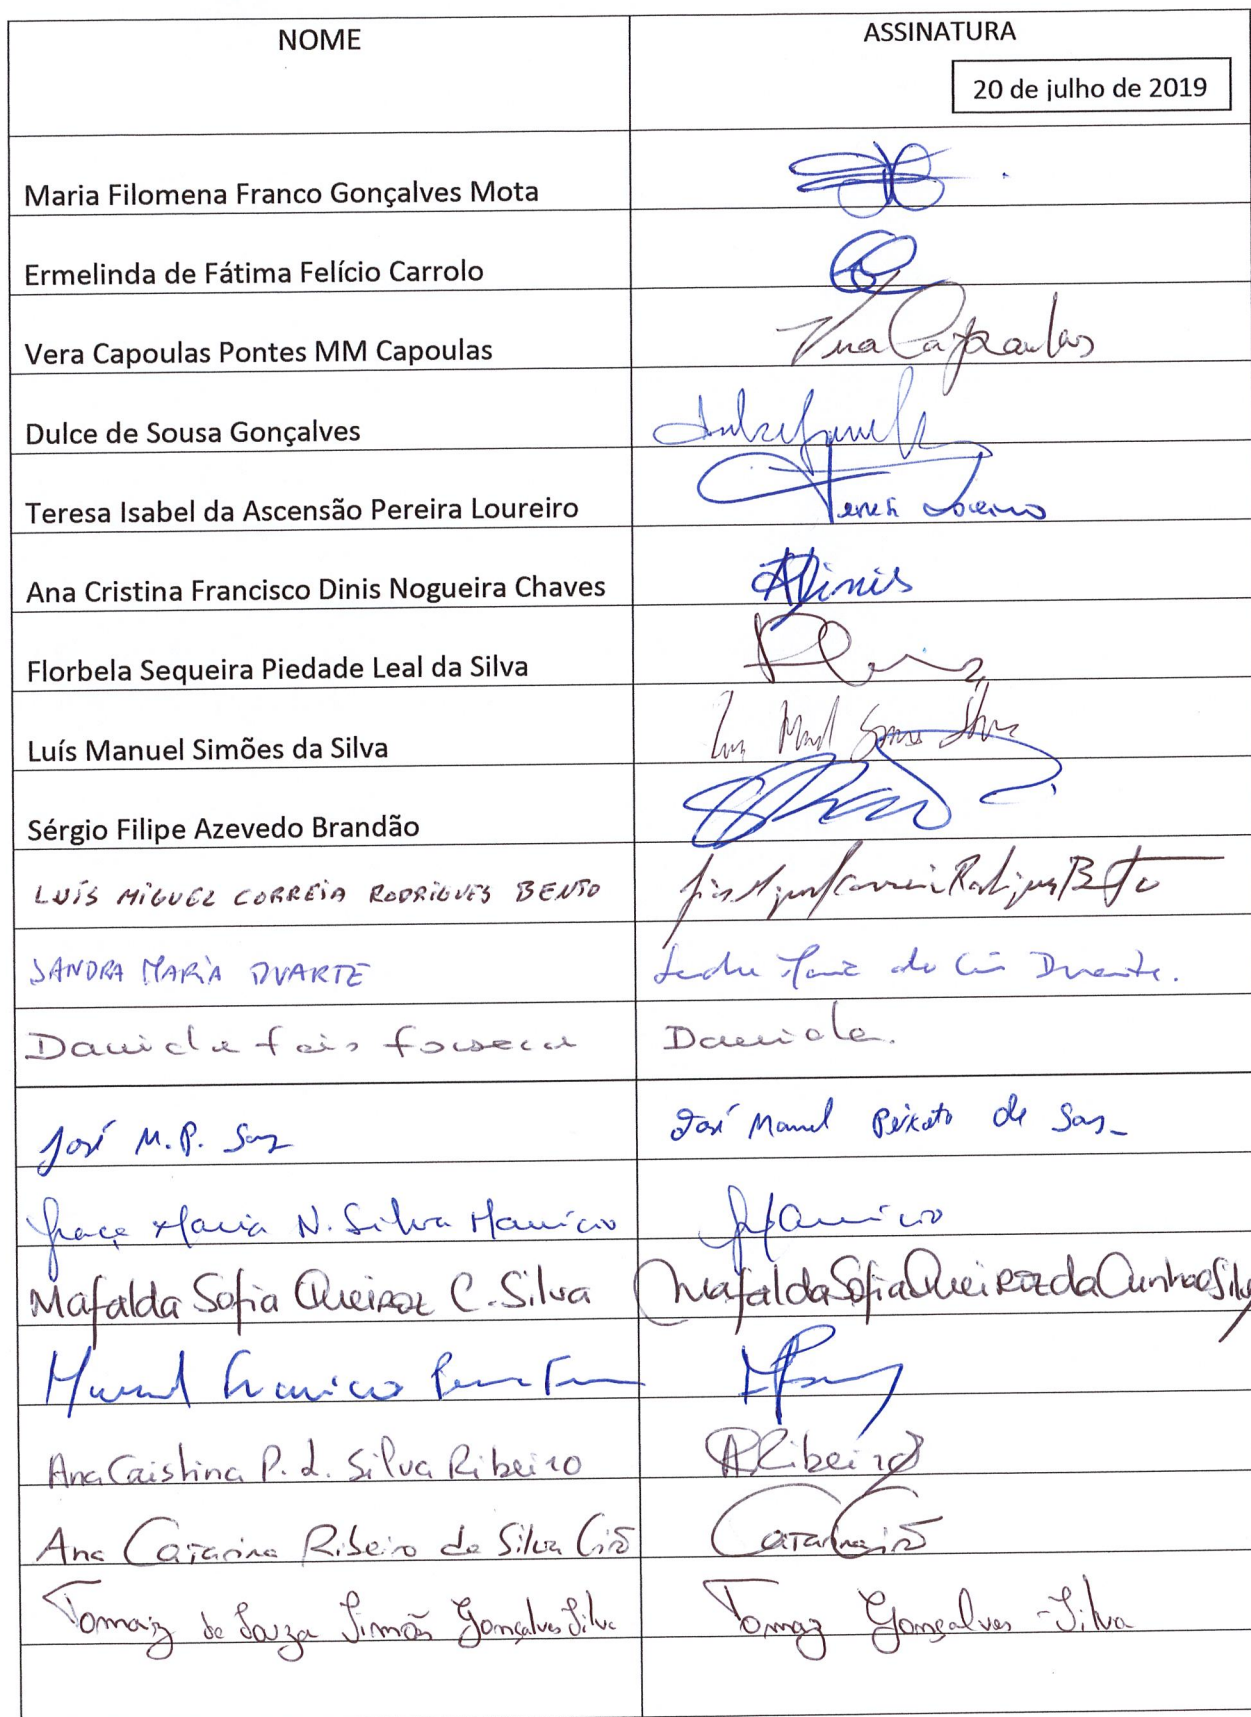 NOME ASSINATURA
20 de julho de 2019
Maria Filomena Franco Gonçalves Mota
Ermelinda de Fátima Felício Carrolo
Vera Capoulas Pontes MM Capoulas Vera Capoulas
Dulce de Sousa Gonçalves
Teresa Isabel da Ascensão Pereira Loureiro Teresa Loureiro
Ana Cristina Francisco Dinis Nogueira Chaves ADinis
Florbela Sequeira Piedade Leal da Silva
Luís Manuel Simões da Silva
Sérgio Filipe Azevedo Brandão
LUÍS MIGUEL CORREIA RODRIGUES BENTO Luís Miguel Correia Rodrigues Bento
SANDRA MARIA DUARTE Duarte.
Daniela Fonseca Daniela.
José M.P. José Manuel Peixoto de
Graça Maria N. Silva Maurício Maurício
Mafalda Sofia Queiroz C. Silva Mafalda Sofia Queiroz da Cunha e Silva
Manuel
Ana Cristina P. L. Silva Ribeiro ARibeiro
Ana Catarina Ribeiro da Silva Catarina
Tomaz de Souza Simões Gonçalves Silva Tomaz Gonçalves-Silva